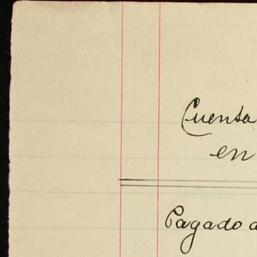 Cuenta
en
Pagado a